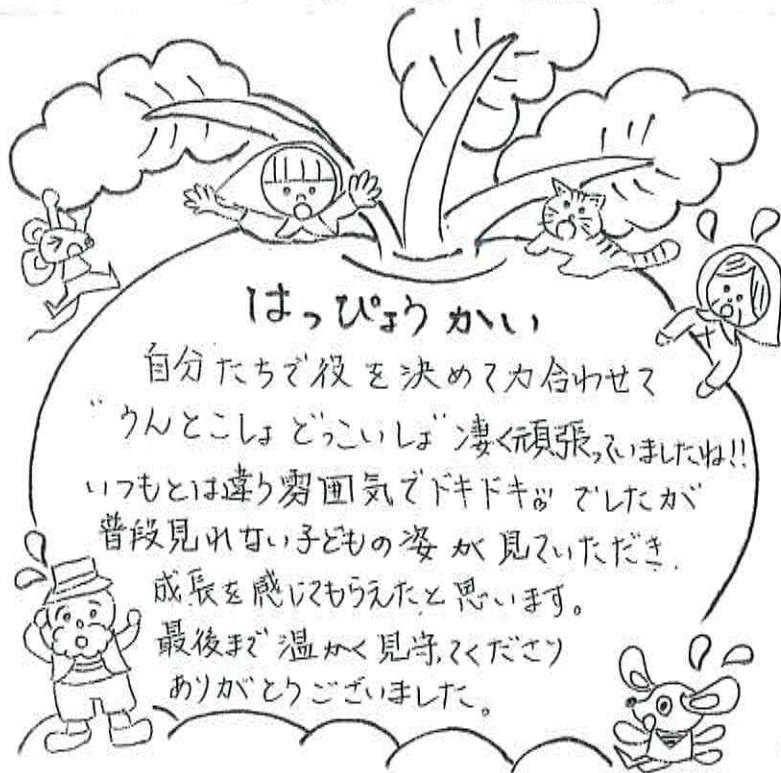 はっぴょうかい
自分たちで役を決めて力合わせて
"うんとこしょ どっこいしょ" 凄く頑張っていましたね!!
いつもとは違う雰囲気でドキドキ でしたが
普段見れない子どもの姿が見ていただき、
成長を感じてもらえたと思います。
最後まで温かく見守ってくださり
ありがとうございました。